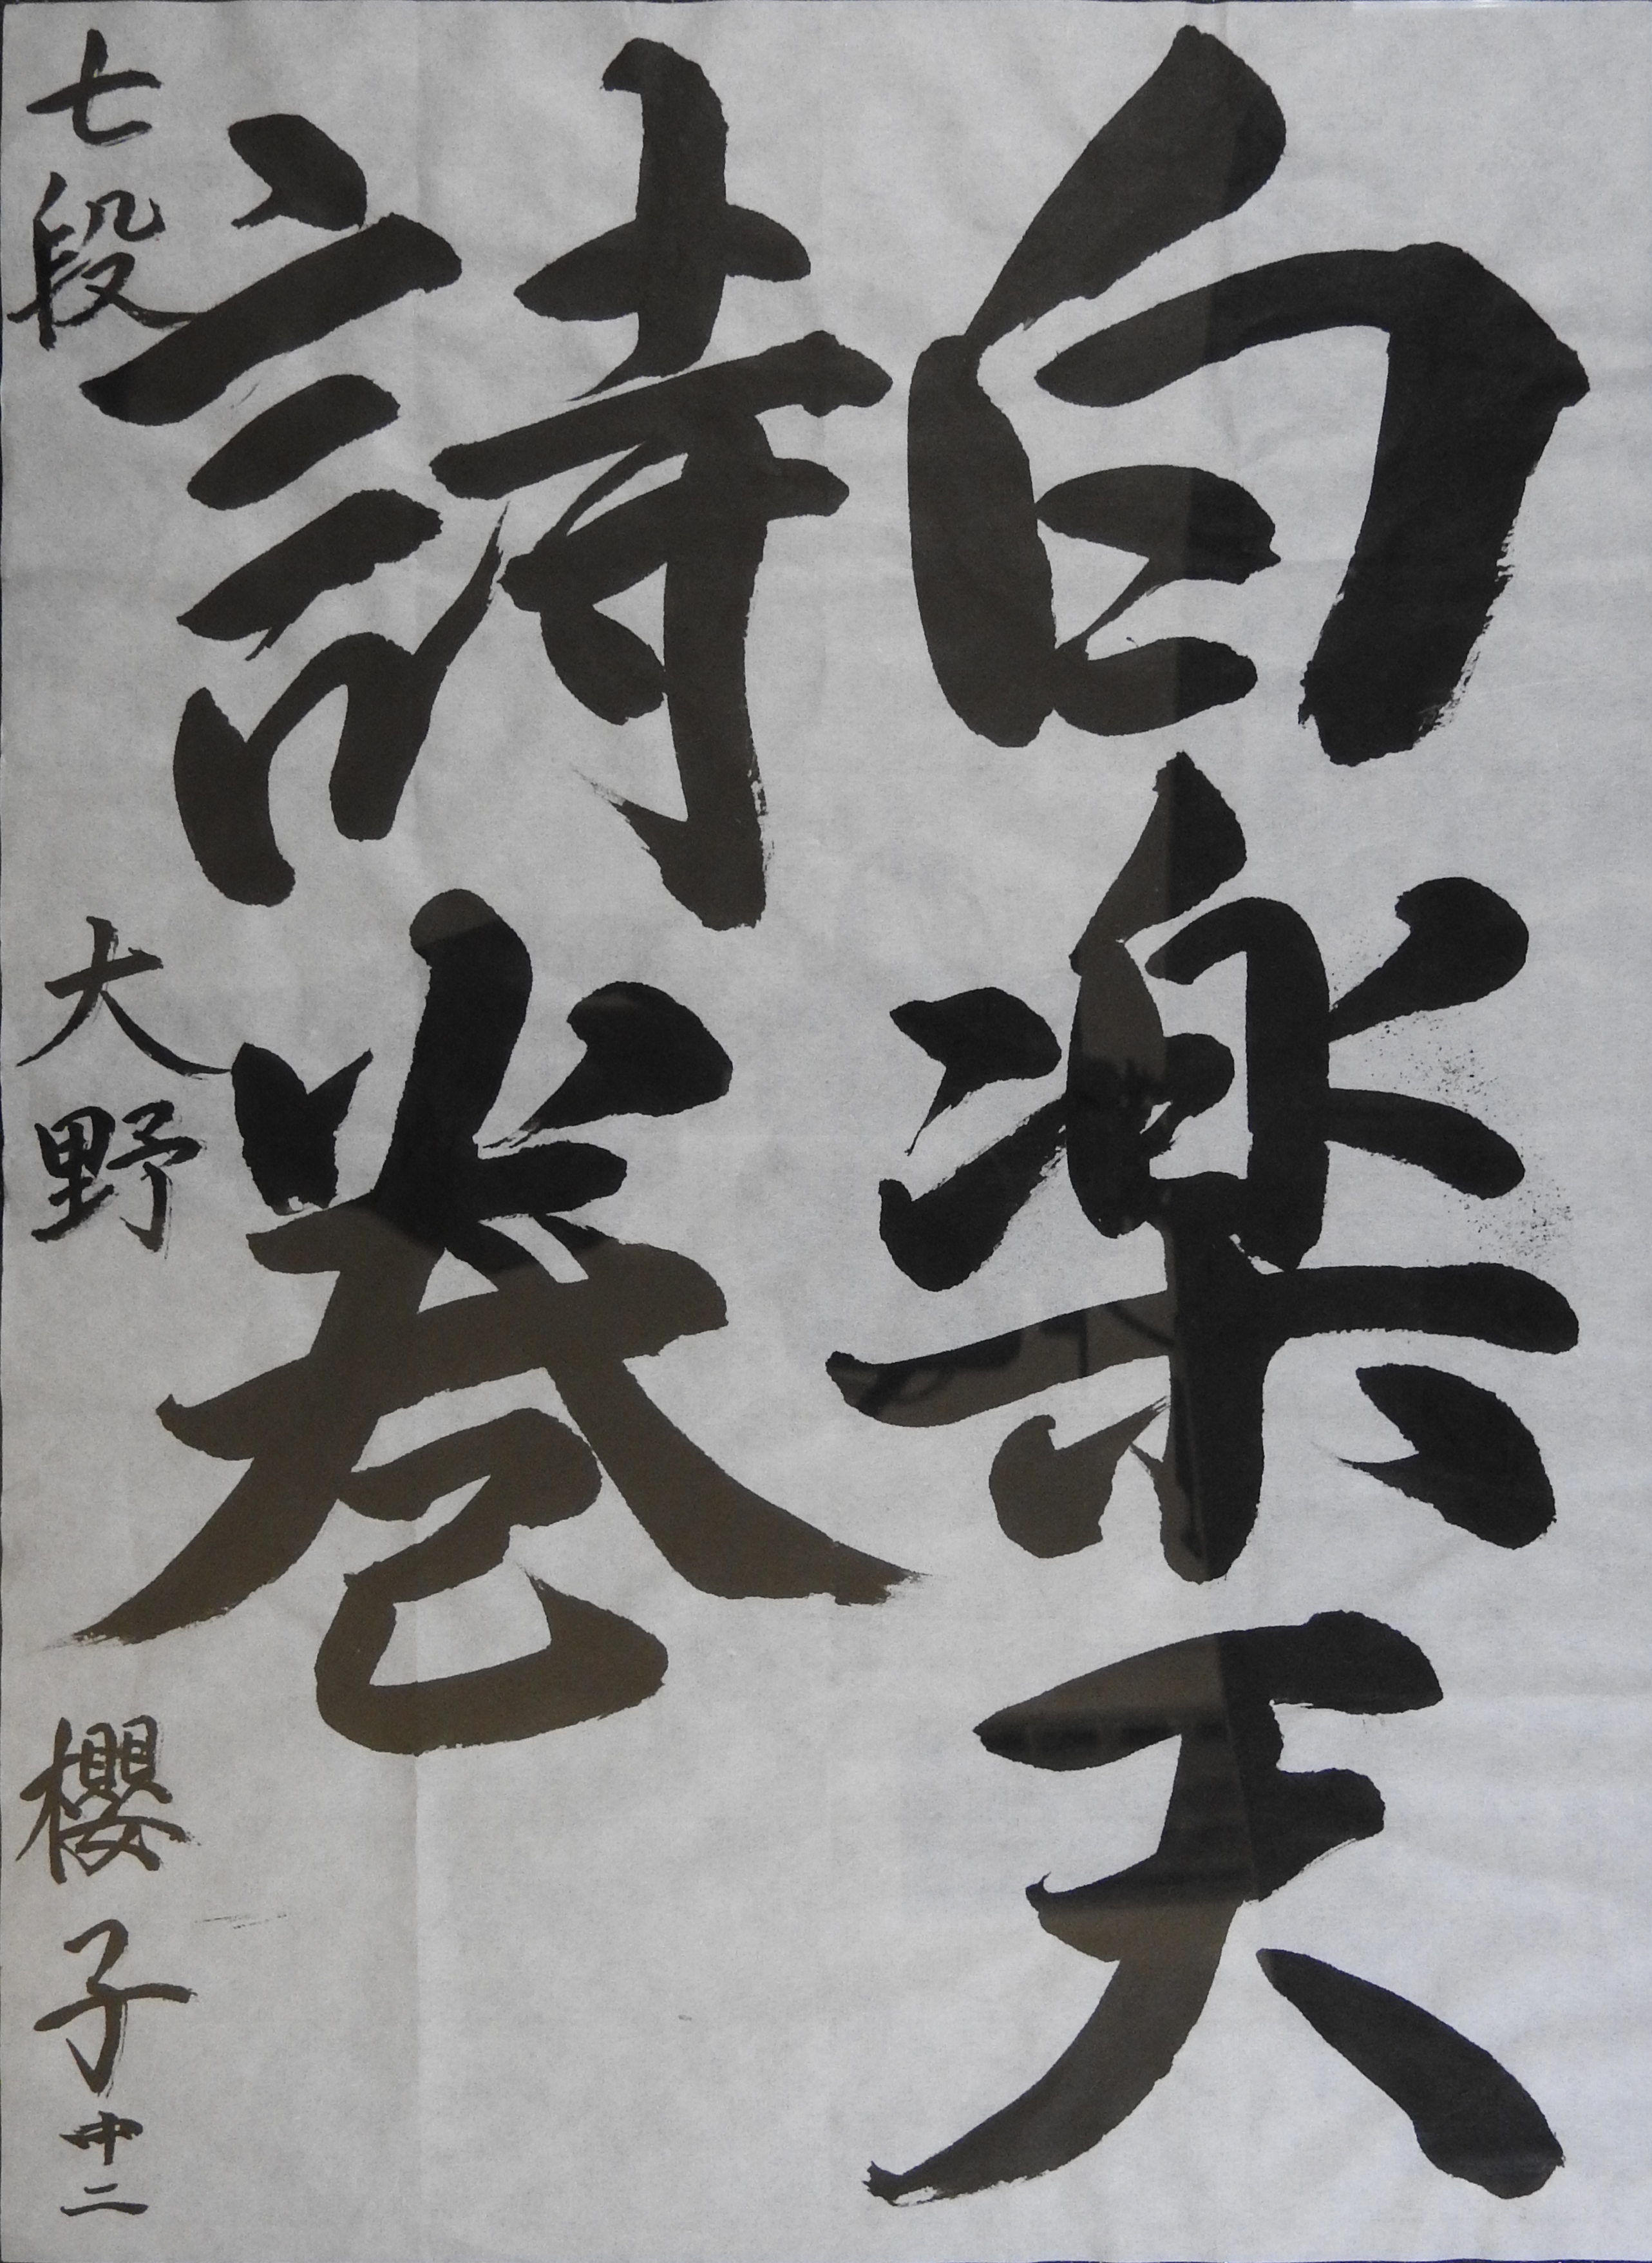 白楽天
詩巻
七段 大野 櫻子 中二